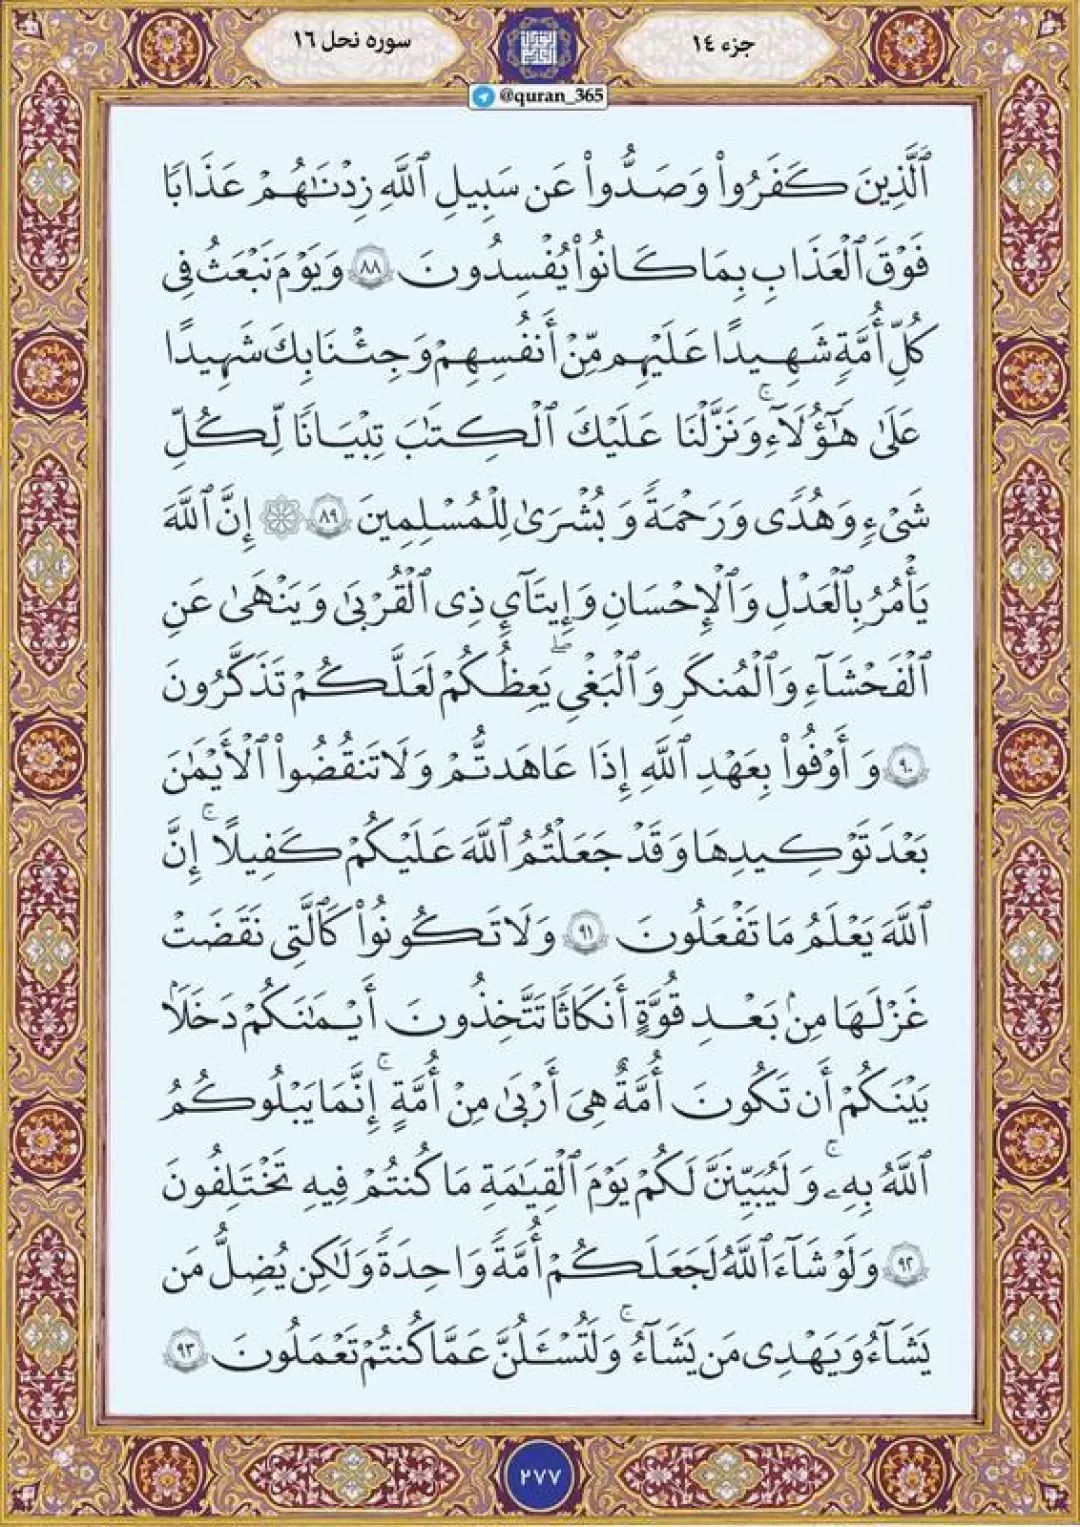 جزء ١٤
سوره نحل ١٦
@quran_365
ٱلَّذِينَ كَفَرُوا۟ وَصَدُّوا۟ عَن سَبِيلِ ٱللَّهِ زِدْنَـٰهُمْ عَذَابًا
فَوْقَ ٱلْعَذَابِ بِمَا كَانُوا۟ يُفْسِدُونَ ٨٨ وَيَوْمَ نَبْعَثُ فِى
كُلِّ أُمَّةٍ شَهِيدًا عَلَيْهِم مِّنْ أَنفُسِهِمْ وَجِئْنَا بِكَ شَهِيدًا
عَلَىٰ هَـٰٓؤُلَآءِ ۚ وَنَزَّلْنَا عَلَيْكَ ٱلْكِتَـٰبَ تِبْيَـانًا لِّكُلِّ
شَىْءٍ وَهُدًى وَرَحْمَةً وَبُشْرَىٰ لِلْمُسْلِمِينَ ٨٩ ۞ إِنَّ ٱللَّهَ
يَأْمُرُ بِٱلْعَدْلِ وَٱلْإِحْسَانِ وَإِيتَآىِٕ ذِى ٱلْقُرْبَىٰ وَيَنْهَىٰ عَنِ
ٱلْفَحْشَآءِ وَٱلْمُنكَرِ وَٱلْبَغْىِ ۖ يَعِظُكُمْ لَعَلَّكُمْ تَذَكَّرُونَ
٩٠ وَأَوْفُوا۟ بِعَهْدِ ٱللَّهِ إِذَا عَاهَدتُّمْ وَلَا تَنقُضُوا۟ ٱلْأَيْمَـٰنَ
بَعْدَ تَوْكِيدِهَا وَقَدْ جَعَلْتُمُ ٱللَّهَ عَلَيْكُمْ كَفِيلًا ۚ إِنَّ
ٱللَّهَ يَعْلَمُ مَا تَفْعَلُونَ ٩١ وَلَا تَكُونُوا۟ كَٱلَّتِى نَقَضَتْ
غَزْلَهَا مِنۢ بَعْدِ قُوَّةٍ أَنكَاثًا تَتَّخِذُونَ أَيْمَـٰنَكُمْ دَخَلًۢا
بَيْنَكُمْ أَن تَكُونَ أُمَّةٌ هِىَ أَرْبَىٰ مِنْ أُمَّةٍ ۚ إِنَّمَا يَبْلُوكُمُ
ٱللَّهُ بِهِۦ ۚ وَلَيُبَيِّنَنَّ لَكُمْ يَوْمَ ٱلْقِيَـٰمَةِ مَا كُنتُمْ فِيهِ تَخْتَلِفُونَ
٩٢ وَلَوْ شَآءَ ٱللَّهُ لَجَعَلَكُمْ أُمَّةً وَاحِدَةً وَلَـٰكِن يُضِلُّ مَن
يَشَآءُ وَيَهْدِى مَن يَشَآءُ ۚ وَلَتُسْـَٔلُنَّ عَمَّا كُنتُمْ تَعْمَلُونَ ٩٣
٢٧٧